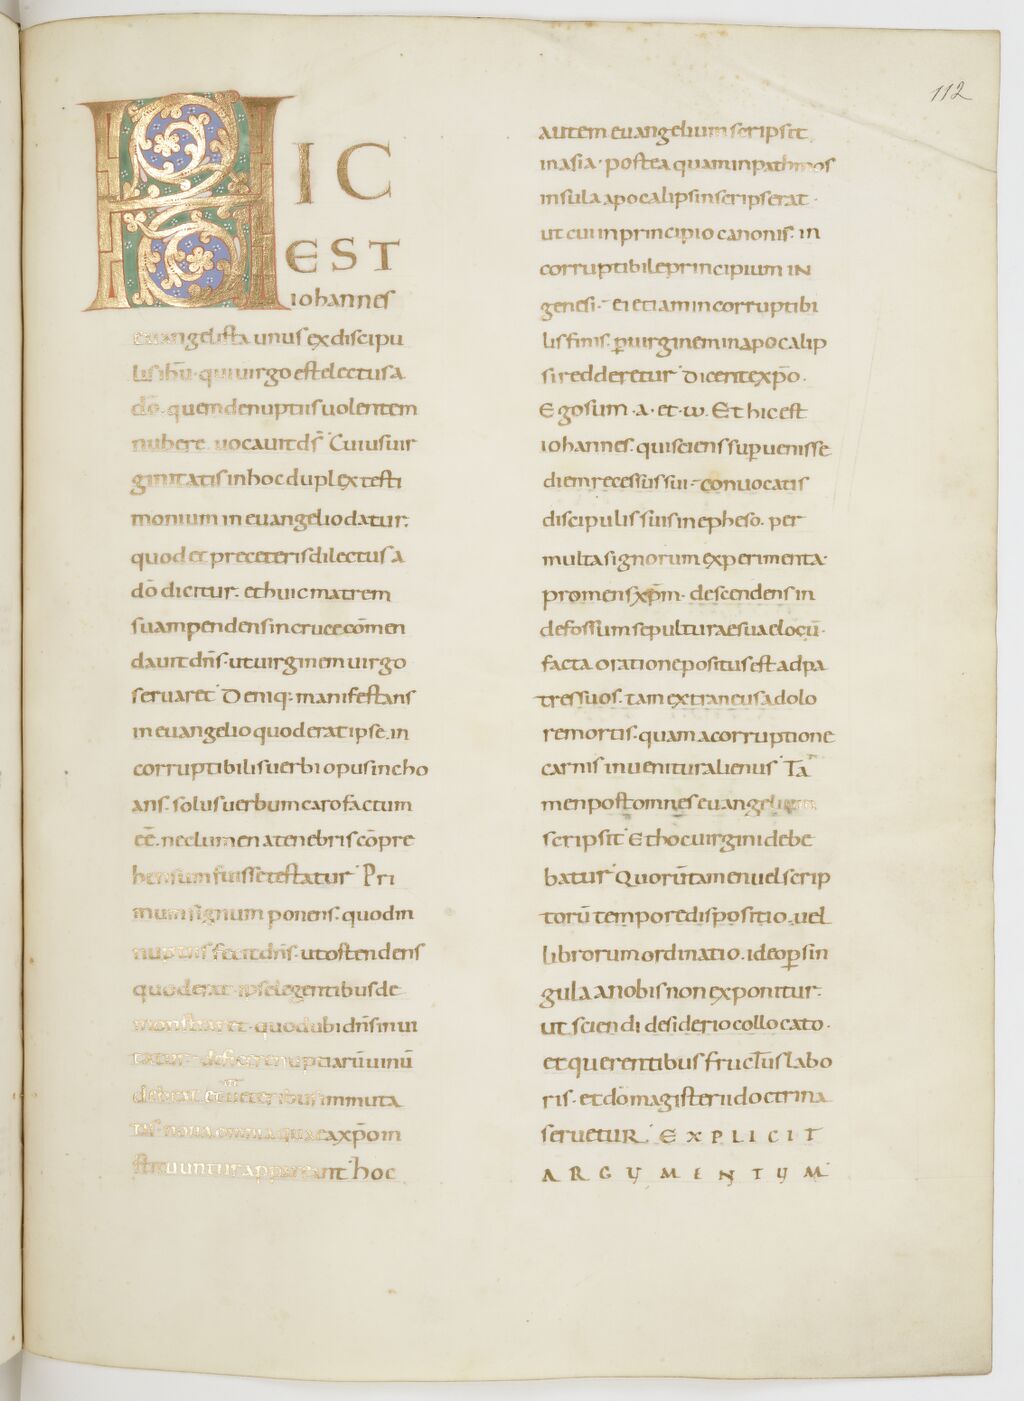 112
HIC
EST
iohannes
euangelista unus ex discipu
lis ihū· qui uirgo est electus a
dō· quem de nuptiis uolentem
nubere uocauit dS̄· Cuius uir
ginitatis in hoc duplex testi
monium in euangelio datur;
quod et pre ceteris dilectus a
dō dicitur· et huic matrem
suam pendens in cruce cōmen
dauit dn̄s· ut uirginem uirgo
seruaret· Deniq; manifestans
in euangelio quod erat ipse in
corruptibilis uerbi opus incho
ans· solus uerbum caro factum
eē· nec lumen a tenebris cōpre
hensum fuisse testatur· Pri
mum signum ponens· quod in
nuptiis fecit dn̄s· ut ostendens
quod erat ipse legentibus de
monstraret· quod ubi dn̄s inui
tatur· deficere nuptiarū uinū
debeat et ueteribus immuta
tis noua omnia quae a xp̄o in
stituuntur appareant· hoc
autem euangelium scripsit
in asia· postea quam in pathmos
insula apocalipsin scripserat·
ut cui in principio canonis· in
corruptibile principium IN
genesi· ei etiam incorruptibi
lis finis· p̱ uirginem in apocalip
si redderetur· Dicente xp̄o·
Ego sum ·a· et ·ω· Et hic est
iohannes· qui sciens sup̱uenisse
diem recessus sui· conuocatis
discipulis suis in epheso· per
multa signorum experimenta·
promens xp̄m· descendens in
defossum sepulturae suae locū·
facta oratione positus est ad pa
tres suos· tam extraneus a dolo
re mortis· quam a corruptione
carnis inuenitur alienus· Ta
men post omnes euangelium
scripsit· Et hoc uirgini debe
batur· Quorū tamen uel scrip
torū tempore dispositio· uel
librorum ordinatio· ideo p̱ sin
gula a nobis non exponitur·
ut sciendi desiderio collocato·
et querentibus fructus labo
ris· et dō magisterii doctrina
seruetuR· EXPLICIT
ARGUMENTUM·